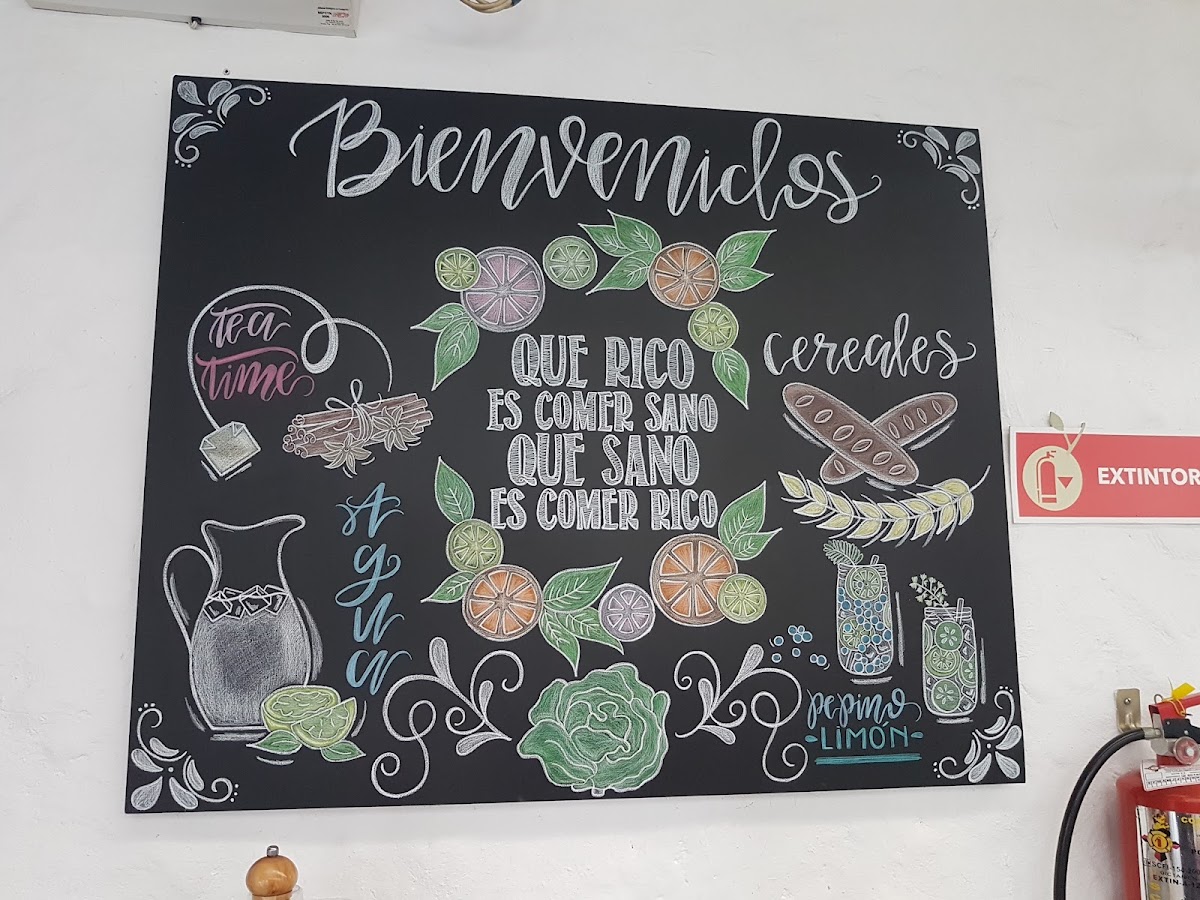 Bienvenidos
tea
time
QUE RICO
ES COMER SANO
QUE SANO
ES COMER RICO
cereales
Agua
pepino
LIMÓN
EXTINTOR